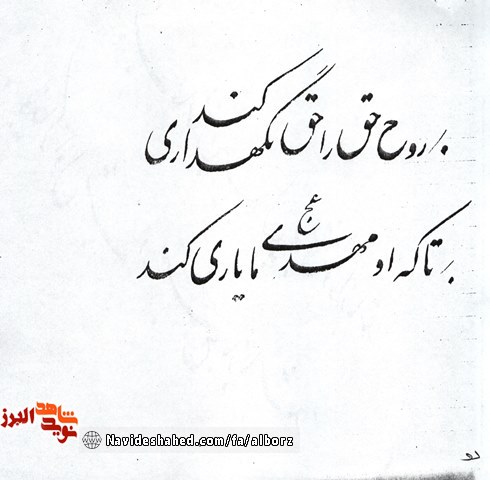 روح حق را حق نگهداری کند
تا که او مهدی عج ما یاری کند
نوید شاهد البرز
Navideshahed.com/fa/alborz